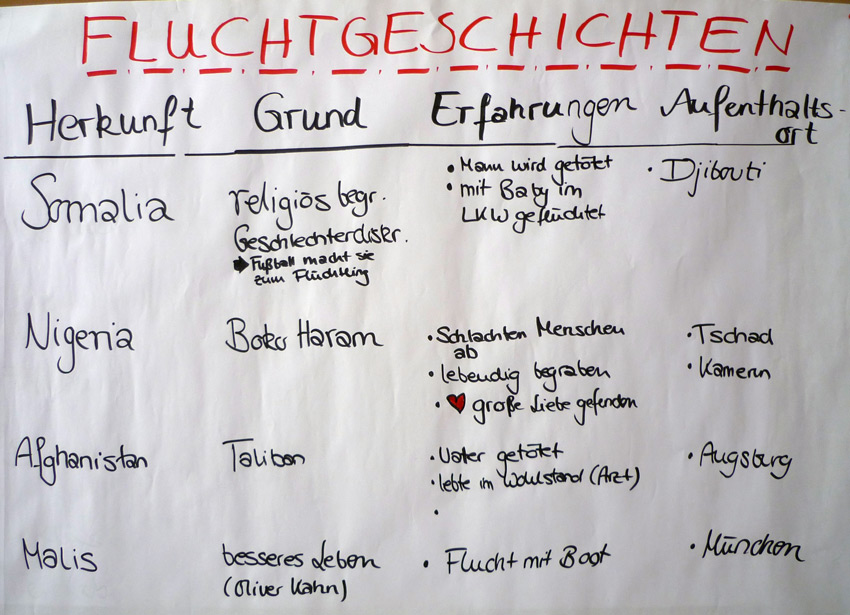 FLUCHTGESCHICHTEN
Herkunft Grund Erfahrungen Aufenthalts-
ort
Somalia
religiös begr.
Geschlechterdiskr.
➡ Fußball macht sie
zum Flüchtling
• Mann wird getötet
• mit Baby im
LKW geflüchtet
• Djibouti
Nigeria
Boko Haram
• Schlachten Menschen
ab
• lebendig begraben
• ♥ große Liebe gefunden
• Tschad
• Kamerun
Afghanistan
Taliban
• Vater getötet
• lebte im Wohlstand (Arzt)
•
• Augsburg
Malis
besseres Leben
(Oliver Kahn)
• Flucht mit Boot
• München